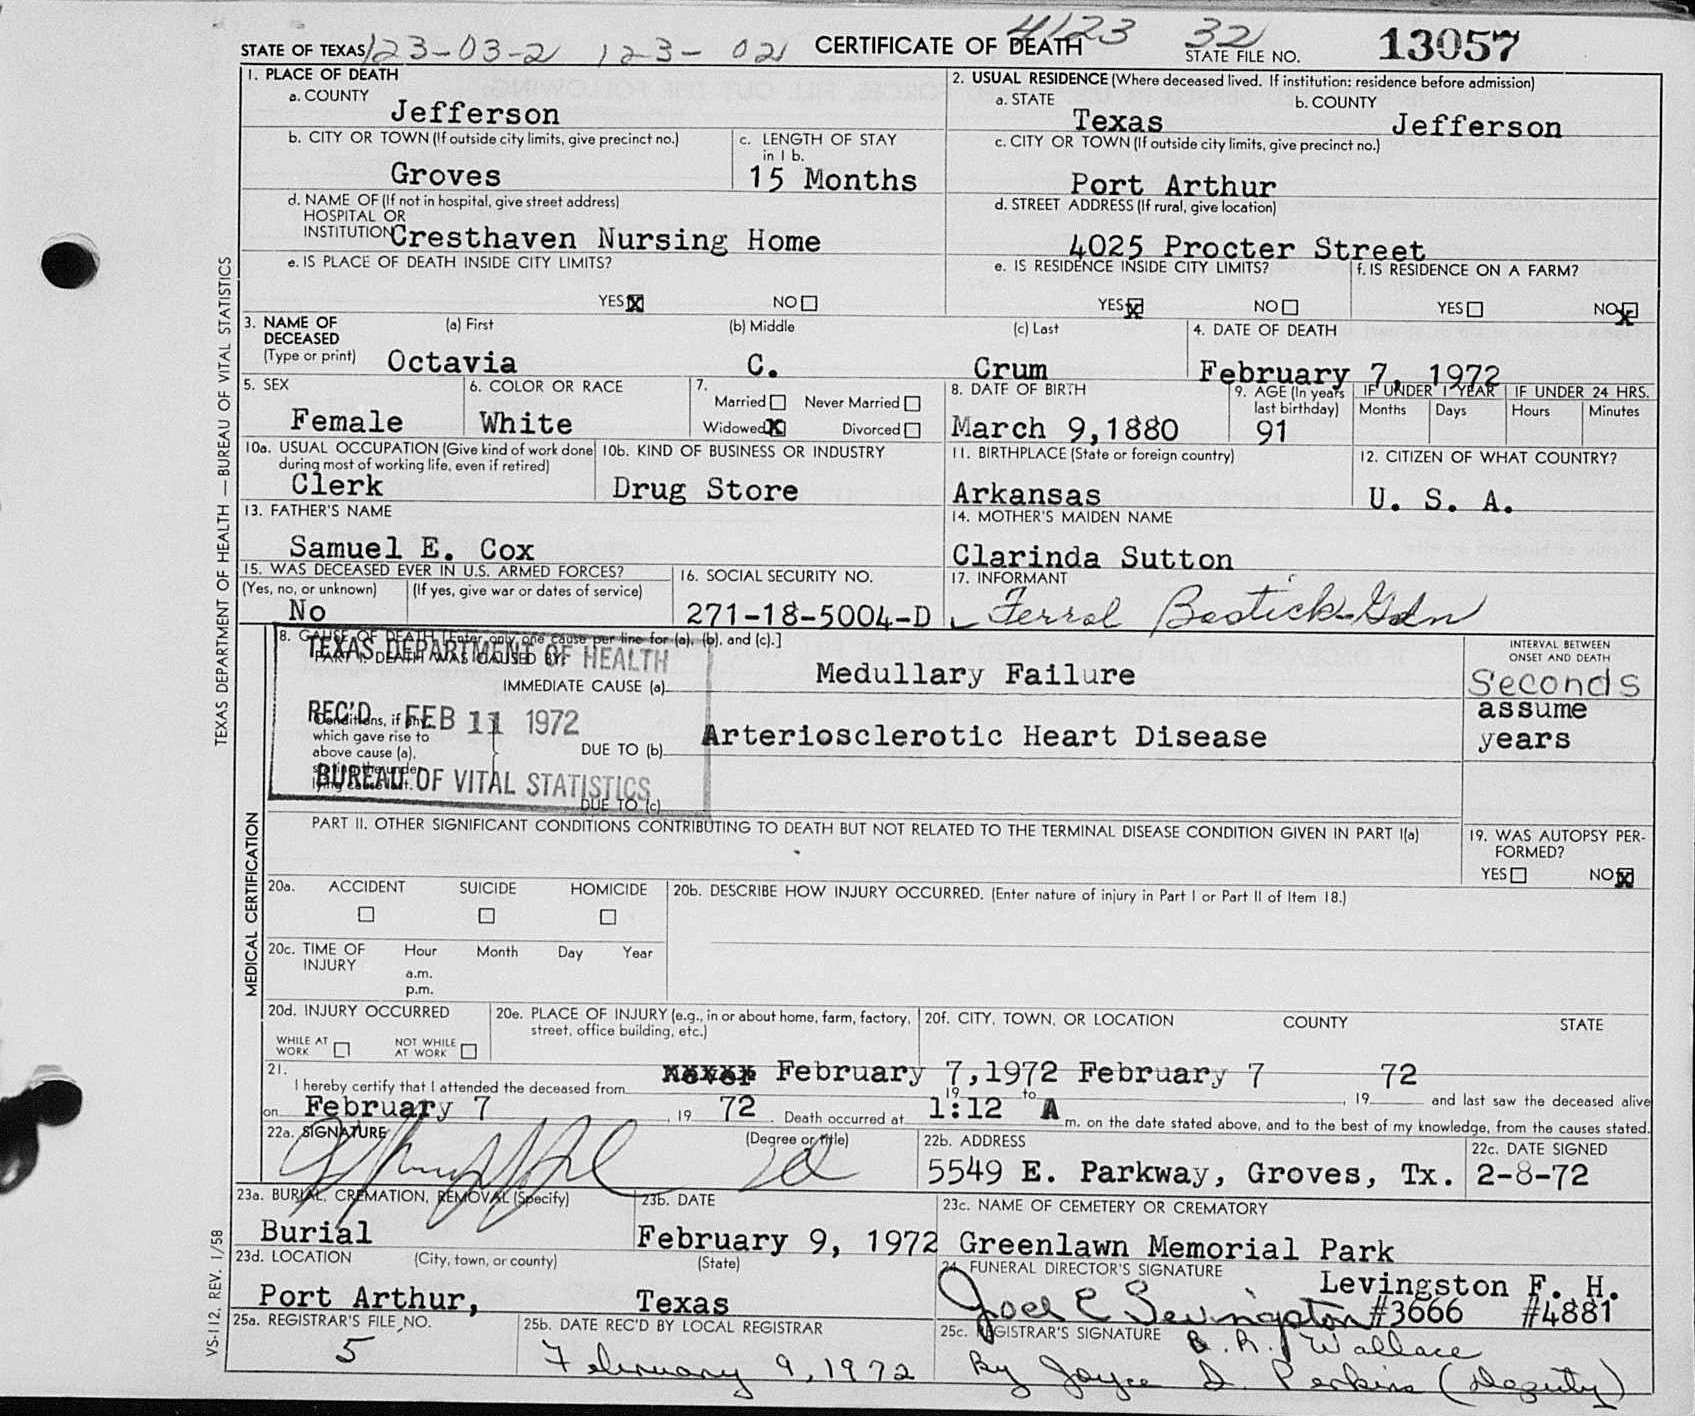 STATE OF TEXAS 123-03-2 123-02 CERTIFICATE OF DEATH 4123 32 STATE FILE NO. 13057
1. PLACE OF DEATH
a. COUNTY
Jefferson
2. USUAL RESIDENCE (Where deceased lived. If institution: residence before admission)
a. STATE b. COUNTY
Texas Jefferson
b. CITY OR TOWN (If outside city limits, give precinct no.)
Groves
c. LENGTH OF STAY
in 1 b.
15 Months
c. CITY OR TOWN (If outside city limits, give precinct no.)
Port Arthur
d. NAME OF (If not in hospital, give street address)
HOSPITAL OR
INSTITUTION Cresthaven Nursing Home
d. STREET ADDRESS (If rural, give location)
4025 Procter Street
e. IS PLACE OF DEATH INSIDE CITY LIMITS?
YES X NO
e. IS RESIDENCE INSIDE CITY LIMITS?
YES X NO
f. IS RESIDENCE ON A FARM?
YES NO X
3. NAME OF
DECEASED
(Type or print)
(a) First (b) Middle (c) Last
Octavia C. Crum
4. DATE OF DEATH
February 7, 1972
5. SEX
Female
6. COLOR OR RACE
White
7.
Married Never Married
Widowed X Divorced
8. DATE OF BIRTH
March 9,1880
9. AGE (In years
last birthday)
91
IF UNDER 1 YEAR
Months Days
IF UNDER 24 HRS.
Hours Minutes
10a. USUAL OCCUPATION (Give kind of work done
during most of working life, even if retired)
Clerk
10b. KIND OF BUSINESS OR INDUSTRY
Drug Store
11. BIRTHPLACE (State or foreign country)
Arkansas
12. CITIZEN OF WHAT COUNTRY?
U. S. A.
13. FATHER'S NAME
Samuel E. Cox
14. MOTHER'S MAIDEN NAME
Clarinda Sutton
15. WAS DECEASED EVER IN U.S. ARMED FORCES?
(Yes, no, or unknown) (If yes, give war or dates of service)
No
16. SOCIAL SECURITY NO.
271-18-5004-D
17. INFORMANT
Ferrol Bostick-Gdn
18. CAUSE OF DEATH [Enter only one cause per line for (a), (b), and (c).]
PART I. DEATH WAS CAUSED BY:
TEXAS DEPARTMENT OF HEALTH
REC'D FEB 11 1972
BUREAU OF VITAL STATISTICS
IMMEDIATE CAUSE (a) Medullary Failure
INTERVAL BETWEEN
ONSET AND DEATH
Seconds
Conditions, if any,
which gave rise to
above cause (a),
stating the under-
lying cause last.
DUE TO (b) Arteriosclerotic Heart Disease
assume
years
DUE TO (c)
PART II. OTHER SIGNIFICANT CONDITIONS CONTRIBUTING TO DEATH BUT NOT RELATED TO THE TERMINAL DISEASE CONDITION GIVEN IN PART I(a)
19. WAS AUTOPSY PER-
FORMED?
YES NO X
20a. ACCIDENT SUICIDE HOMICIDE
20b. DESCRIBE HOW INJURY OCCURRED. (Enter nature of injury in Part I or Part II of Item 18.)
20c. TIME OF
INJURY
Hour Month Day Year
a.m.
p.m.
20d. INJURY OCCURRED
WHILE AT
WORK
NOT WHILE
AT WORK
20e. PLACE OF INJURY (e.g., in or about home, farm, factory,
street, office building, etc.)
20f. CITY, TOWN, OR LOCATION COUNTY STATE
21.
I hereby certify that I attended the deceased from February 7,1972 19 to February 7, 1972 and last saw the deceased alive
on February 7, 1972. Death occurred at 1:12 A m. on the date stated above, and to the best of my knowledge, from the causes stated.
22a. SIGNATURE (Degree or title)
22b. ADDRESS
5549 E. Parkway, Groves, Tx.
22c. DATE SIGNED
2-8-72
23a. BURIAL, CREMATION, REMOVAL (Specify)
Burial
23b. DATE
February 9, 1972
23c. NAME OF CEMETERY OR CREMATORY
Greenlawn Memorial Park
23d. LOCATION (City, town, or county) (State)
Port Arthur, Texas
24. FUNERAL DIRECTOR'S SIGNATURE
Levingston F. H.
Joel E Levingston #3666 #4881
25a. REGISTRAR'S FILE NO.
5
25b. DATE REC'D BY LOCAL REGISTRAR
February 9, 1972
25c. REGISTRAR'S SIGNATURE
B. R. Wallace
By Joyce D. Perkins (Deputy)
TEXAS DEPARTMENT OF HEALTH — BUREAU OF VITAL STATISTICS
MEDICAL CERTIFICATION
VS-112, REV. 1/58